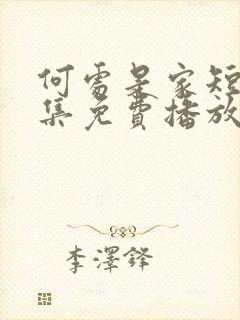 何處是家短
集免費播放
李澤鋒